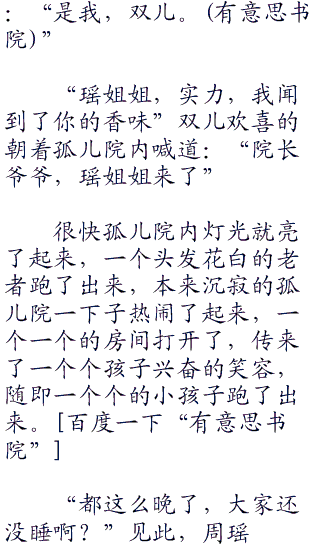 ：“是我，双儿。(有意思书
院)”
“瑶姐姐，实力，我闻
到了你的香味”双儿欢喜的
朝着孤儿院内喊道：“院长
爷爷，瑶姐姐来了”
很快孤儿院内灯光就亮
了起来，一个头发花白的老
者跑了出来，本来沉寂的孤
儿院一下子热闹了起来，一
个一个的房间打开了，传来
了一个个孩子兴奋的笑容，
随即一个个的小孩子跑了出
来。[百度一下“有意思书
院”]
“都这么晚了，大家还
没睡啊？”见此，周瑶